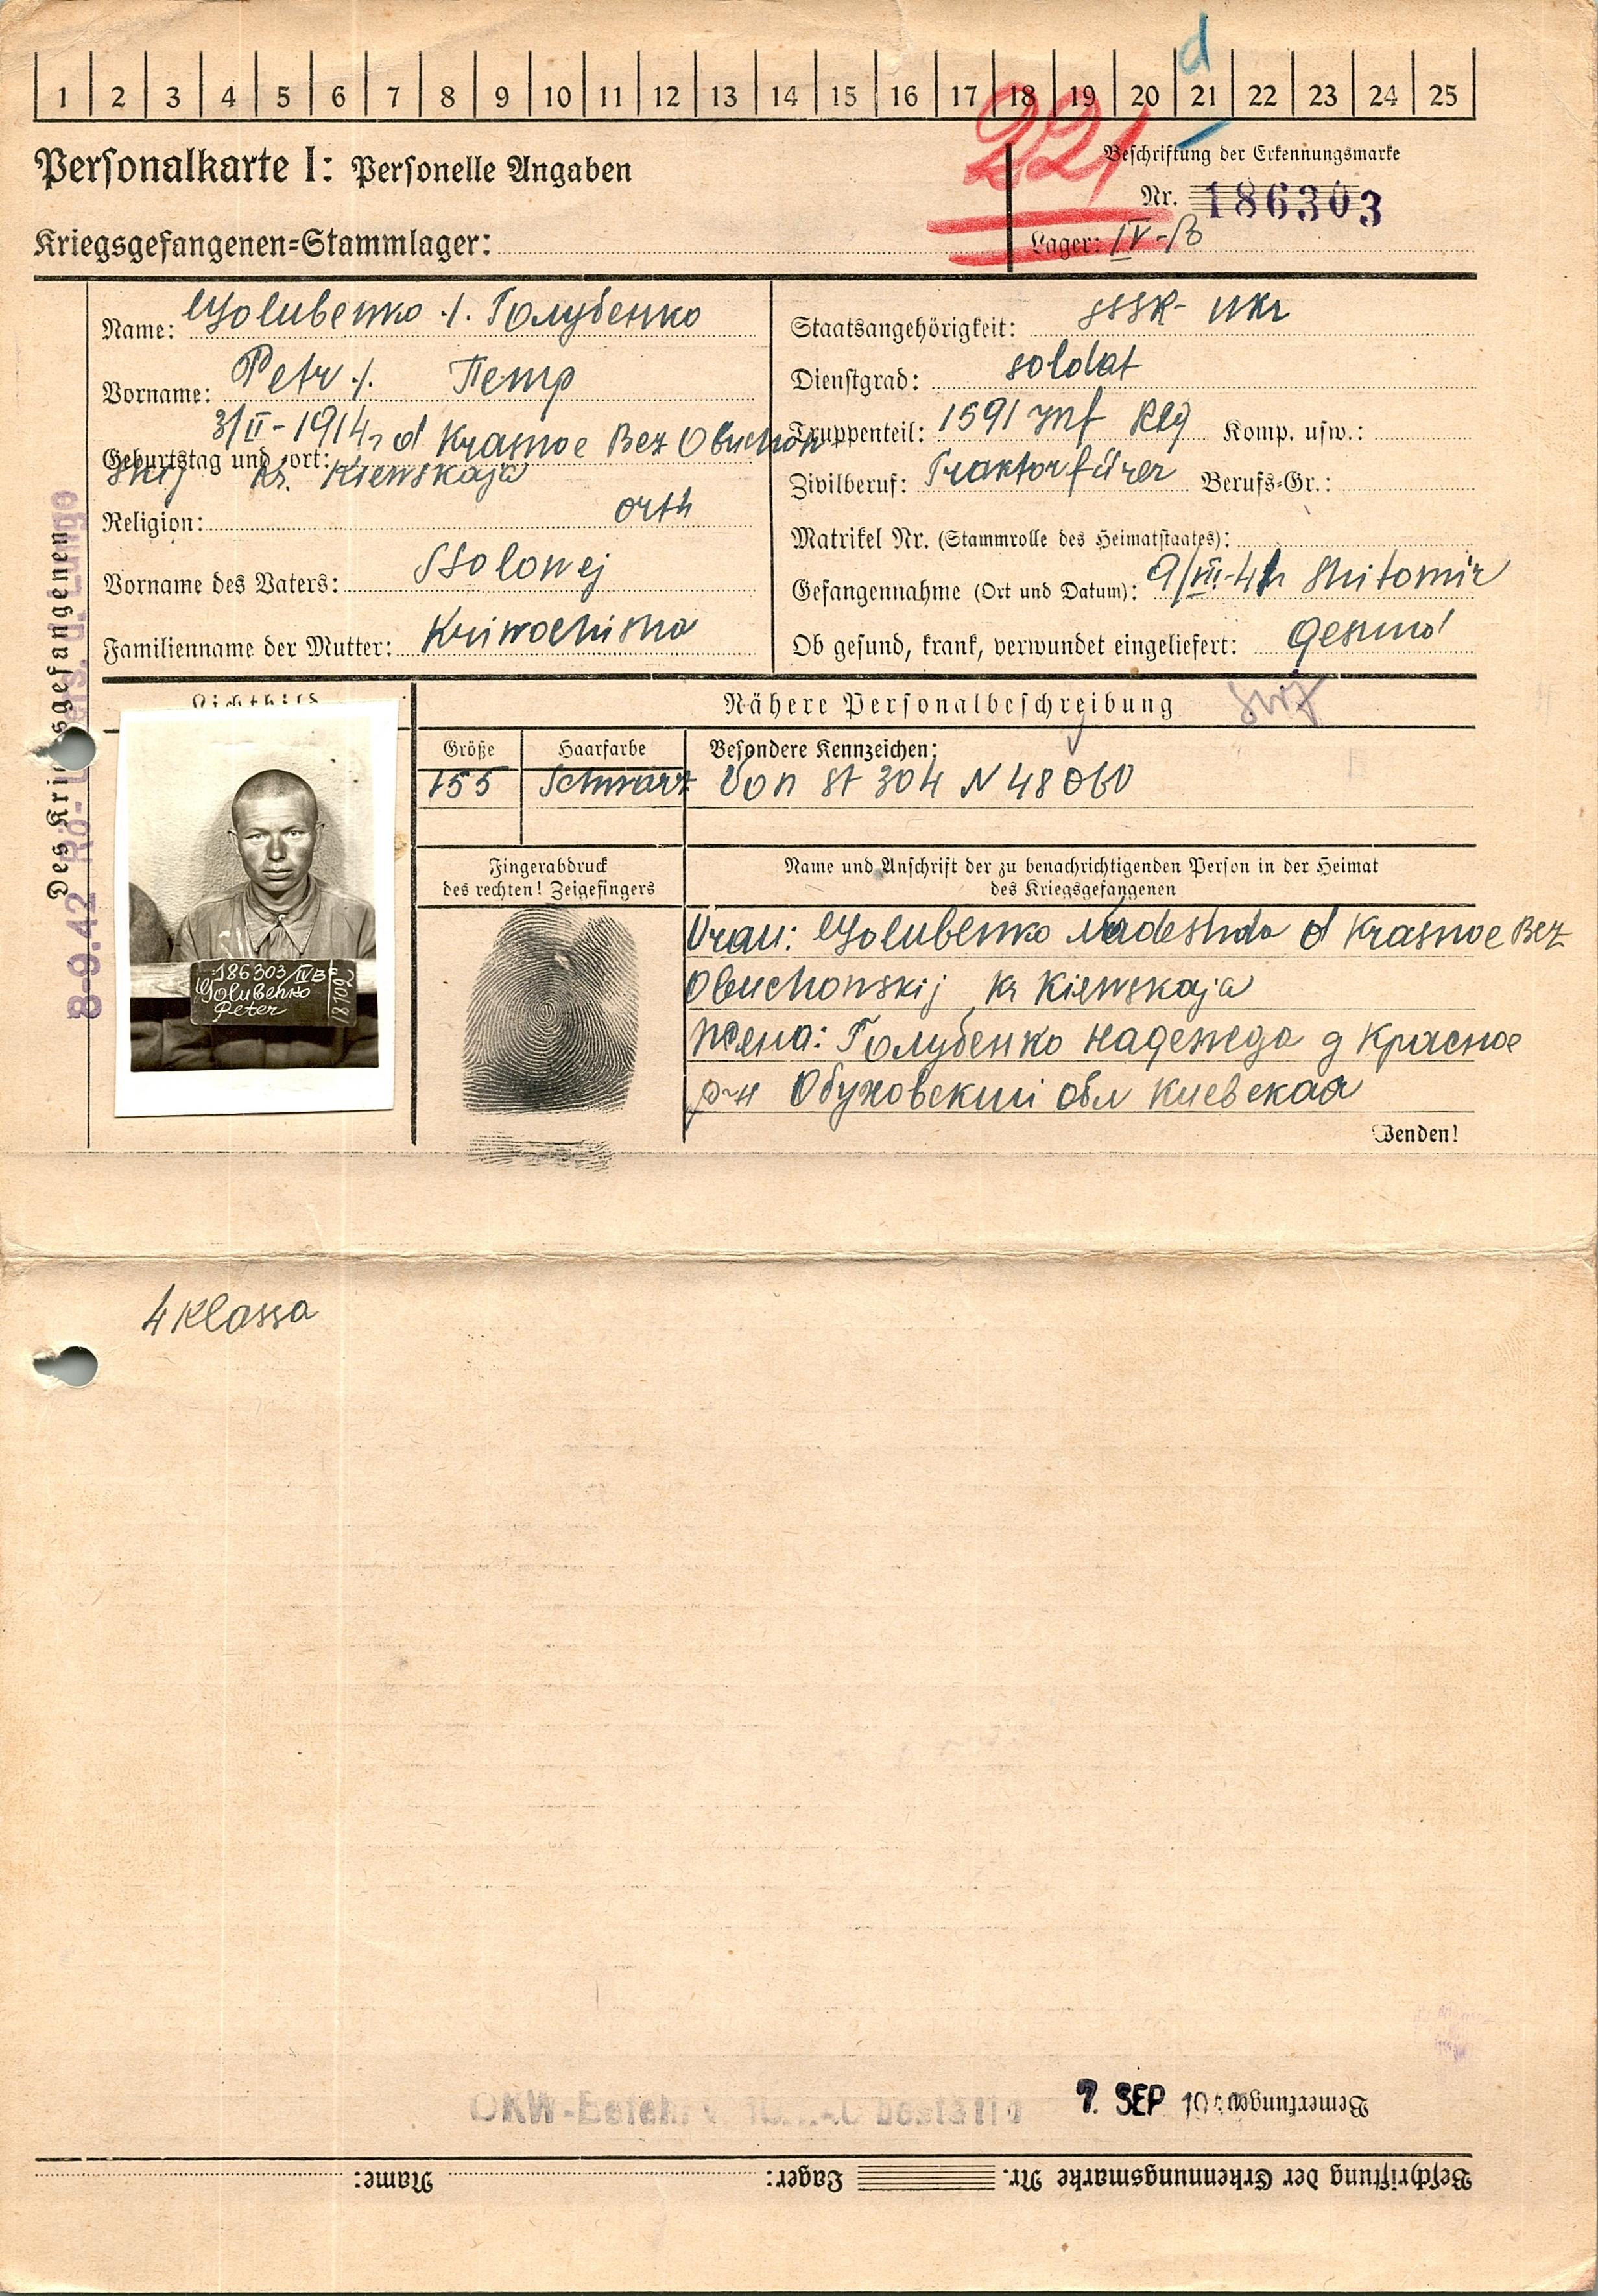 d
1 2 3 4 5 6 7 8 9 10 11 12 13 14 15 16 17 18 19 20 21 22 23 24 25
221
Personalkarte I: Personelle Angaben
Beschriftung der Erkennungsmarke
Nr. 186303
Kriegsgefangenen-Stammlager:
Lager: IV-B
Des Kriegsgefangenen
8-9.42 Rö-
Name: Golubenko ./. Голубенко
Vorname: Petr ./. Петр
Geburtstag und -ort: 3/II-1914, d Krasnoe Bez Obuchow
skij kr. Kiewskaja
Religion: orth
Vorname des Vaters: Ssolowej
Familienname der Mutter:
Staatsangehörigkeit: SSSR- Ukr
Dienstgrad: soldat
Truppenteil: 1591 Inf Reg Komp. usw.:
Zivilberuf: Traktorfürer Berufs-Gr.:
Matrikel Nr. (Stammrolle des Heimatstaates):
Gefangennahme (Ort und Datum): 9/VIII-41 Shitomir
Ob gesund, krank, verwundet eingeliefert: gesund
Lichtbild
Nähere Personalbeschreibung
Größe Haarfarbe Besondere Kennzeichen:
155 Schwarz Von St 304 N 48060
Fingerabdruck
des rechten! Zeigefingers
Name und Anschrift der zu benachrichtigenden Person in der Heimat
des Kriegsgefangenen
186303/IVB
Golubenko
Peter
Vrau: Golubenko Nadeshda d Krasnoe Bez
Obuchowskij kr Kiewskaja
Жена: Голубенко Надежда д Красное
р-н Обуховский обл Киевская
Wenden!
4 Klassa
OKW-Befehl v. bestätig
7. SEP
Bemerkungen
Beschriftung der Erkennungsmarke Nr. Lager: Name: